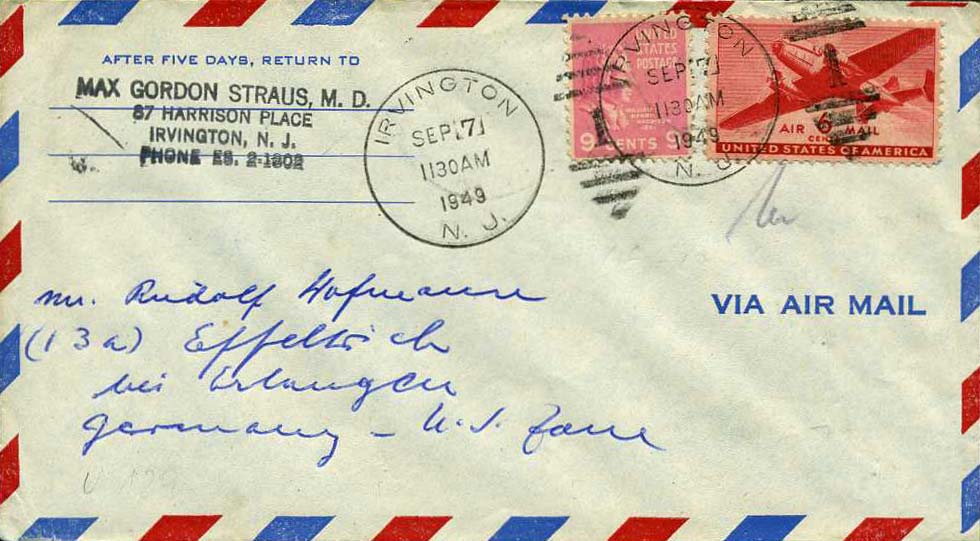 AFTER FIVE DAYS, RETURN TO
MAX GORDON STRAUS, M. D.
87 HARRISON PLACE
IRVINGTON, N. J.
PHONE ES. 2-1802
IRVINGTON
SEP 7
1130AM
1949
N. J.
UNITED
STATES
POSTAGE
9 CENTS 9
IRVINGTON
SEP 7
1130AM
1949
N. J.
1
1
AIR 6 MAIL
CENTS
UNITED STATES OF AMERICA
VIA AIR MAIL
Mr. Rudolf Hofmann
(13a) Effeltrich
bei Erlangen
Germany - U.S. Zone